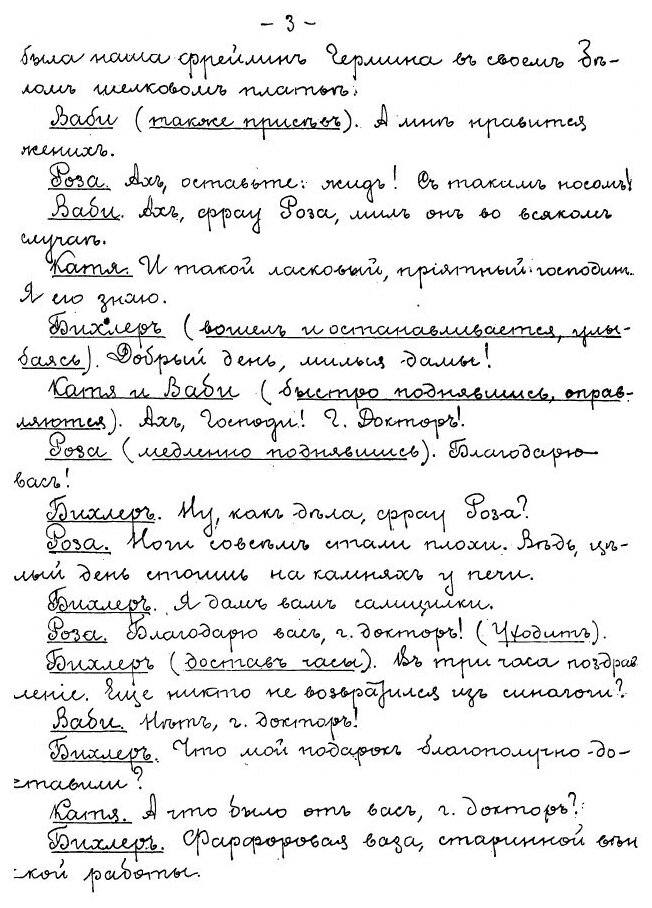 - 3 -
была наша фрейлинъ Гермина въ своемъ бѣ-
ломъ шелковомъ платьѣ.
Ваби (также присѣвъ). А мнѣ нравится
женихъ.
Роза. Ахъ, оставьте: жидъ! Съ такимъ носомъ!
Ваби. Ахъ, фрау Роза, милъ онъ во всякомъ
случаѣ.
Катя. И такой ласковый, пріятный господинъ.
Я его знаю.
Бихлеръ (вошелъ и останавливается, улы-
баясь). Добрый день, милыя дамы!
Катя и Ваби (быстро поднявшись, оправ-
ляются). Ахъ, Господи! Г. Докторъ!
Роза (медленно поднявшись). Благодарю
васъ!
Бихлеръ. Ну, какъ дѣла, фрау Роза?
Роза. Ноги совсѣмъ стали плохи. Вѣдь, цѣ-
лый день стоишь на камняхъ у печи.
Бихлеръ. Я дамъ вамъ салицилки.
Роза. Благодарю васъ, г. докторъ! (Уходитъ).
Бихлеръ (доставъ часы). Въ три часа поздрав
леніе. Еще никто не возвратился изъ синагоги?
Ваби. Нѣтъ, г. докторъ!
Бихлеръ. Что мой подарокъ благополучно до-
ставили?
Катя. А что было отъ васъ, г. докторъ?
Бихлеръ. Фарфоровая ваза, старинной вѣн
ской работы.